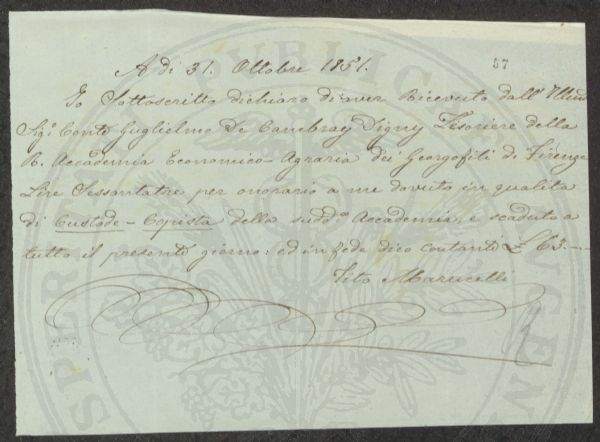 57
A dì 31. Ottobre 1851.
Io Sottoscritto dichiaro di aver Ricevuto dall' Illmo
Sigr. Conte Guglielmo De Cambray Digny Tesoriere della
R. Accademia Economico-Agraria dei Georgofili di Firenze
Lire Sessantatre per onorario a me dovuto in qualità
di Custode-Copista della sudda. Accademia, e scaduto a
tutto il presente giorno: ed in fede dico contanti £ 63.-.-
Tito Marucelli
PVBLICAE